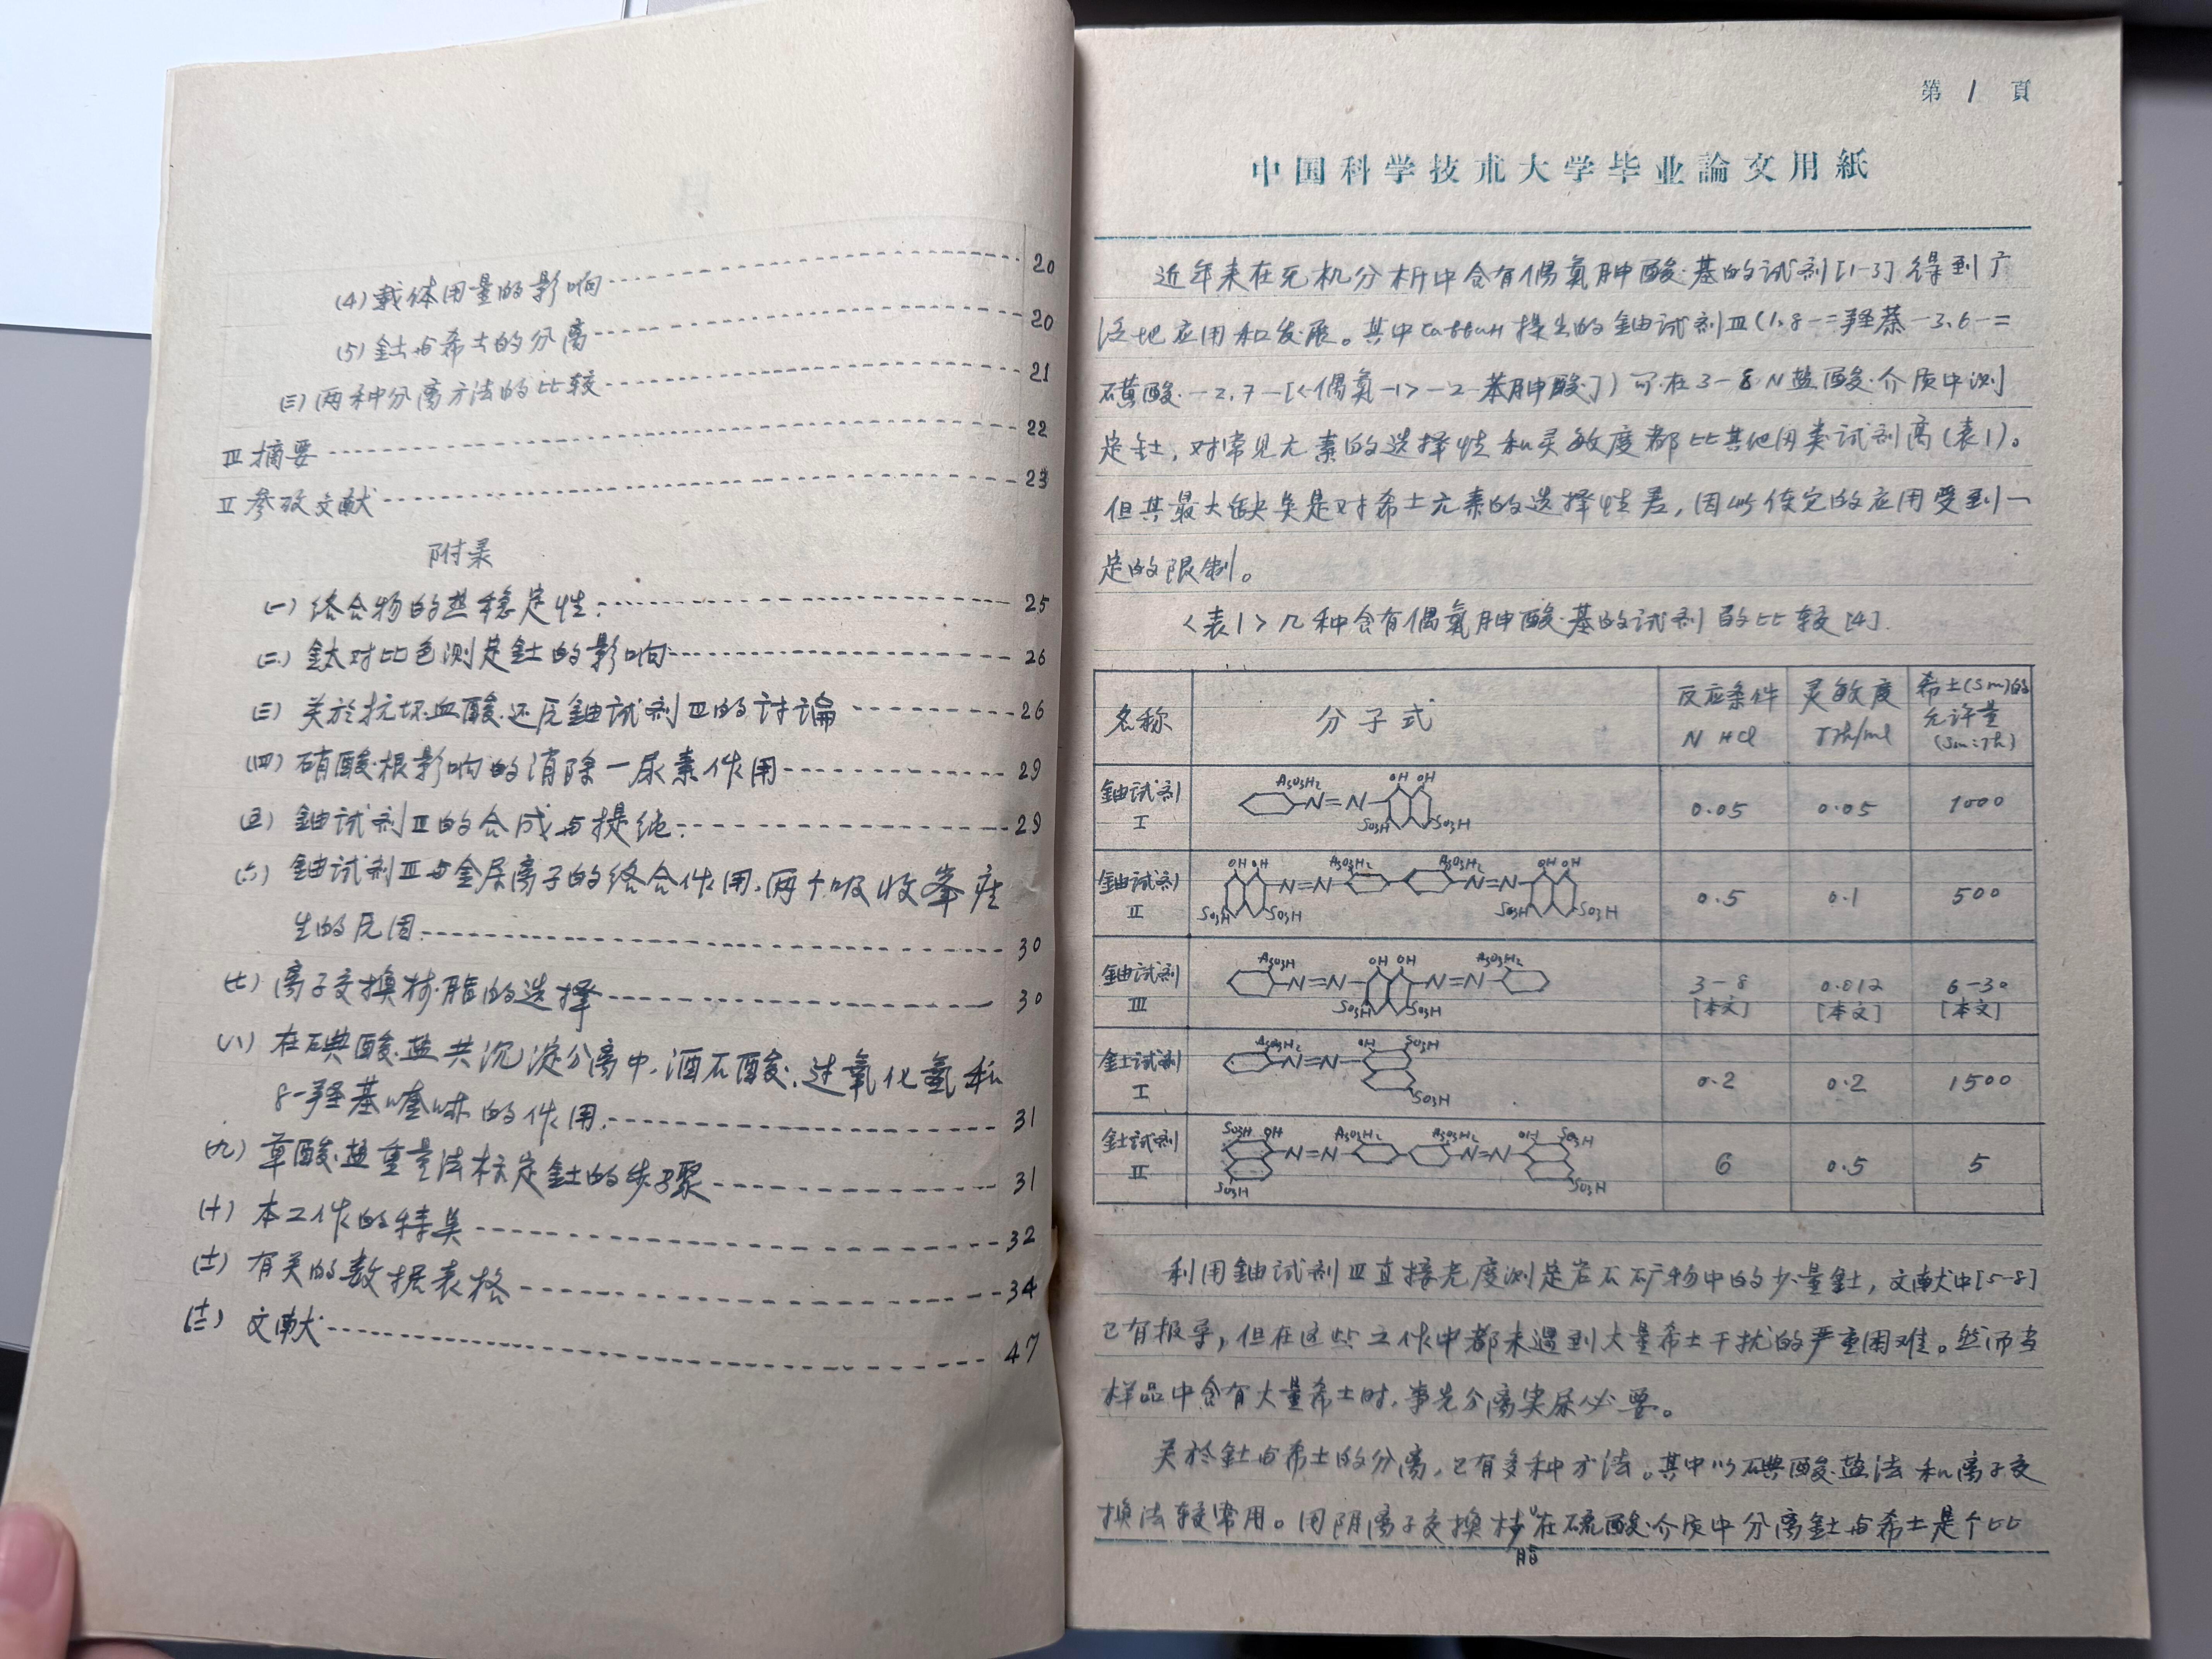 (4) 载体用量的影响 20
(5) 钍与希土的分离 20
(三) 两种分离方法的比较 21
Ⅲ 摘要 22
Ⅱ 参攷文献 23
附录
(一) 络合物的热稳定性. 25
(二) 钛对比色测定钍的影响 26
(三) 关於抗坏血酸还反鈾试剂Ⅲ的讨論 26
(四) 硝酸根影响的消除—尿素作用 29
(五) 鈾试剂Ⅲ的合成与提纯. 29
(六) 鈾试剂Ⅲ与金属离子的络合作用,两个吸收峯产
生的原因. 30
(七) 离子交换树脂的选择 30
(八) 在碘酸盐共沉淀分离中,酒石酸,过氧化氢和
8-羟基喹啉的作用. 31
(九) 草酸盐重量法标定钍的步骤 31
(十) 本工作的特点 32
(十一) 有关的数据表格 34
(十二) 文献 47
第 1 頁
中国科学技朮大学毕业論文用紙
近年来在无机分析中含有偶氮胂酸基的试剂[1-3]得到广
泛地应用和发展。其中Саввин提出的鈾试剂Ⅲ(1,8-二羟萘-3,6-二
磺酸-2,7-[<偶氮-1>-2-苯胂酸])可在3-8N盐酸介质中测
定钍,对常见元素的选择性和灵敏度都比其他同类试剂高(表1)。
但其最大缺点是对希土元素的选择性差,因此使它的应用受到一
定的限制。
<表1>几种含有偶氮胂酸基的试剂的比较[4].
名称 分子式 反应条件 N HCl 灵敏度 γTh/ml 希土(Sm)的允许量 (Sm:Th)
鈾试剂 Ⅰ AsO3H2 N=N OH OH SO3H SO3H 0.05 0.05 1000
鈾试剂 Ⅱ OH OH AsO3H2 AsO3H2 OH OH N=N N=N SO3H SO3H SO3H SO3H 0.5 0.1 500
鈾试剂 Ⅲ AsO3H OH OH AsO3H2 N=N N=N SO3H SO3H 3-8 [本文] 0.012 [本文] 6-30 [本文]
钍试剂 Ⅰ AsO3H2 N=N OH SO3H SO3H 0.2 0.2 1500
钍试剂 Ⅱ SO3H OH AsO3H2 AsO3H2 OH SO3H N=N N=N SO3H SO3H 6 0.5 5
利用鈾试剂Ⅲ直接光度测定岩石矿物中的少量钍,文献中[5-8]
已有报导,但在这些工作中都未遇到大量希土干扰的严重困难。然而当
样品中含有大量希土时,事先分离实属必要。
关於钍与希土的分离,已有多种方法。其中以碘酸盐法和离子交
换法较常用。用阴离子交换树脂在硫酸介质中分离钍与希土是个比